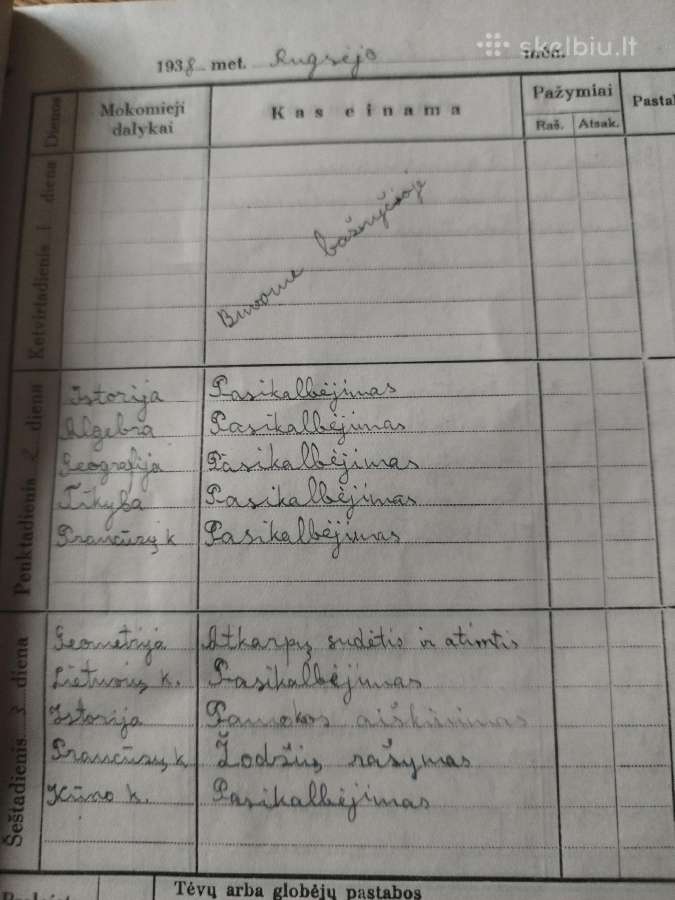 skelbiu.lt
1938 met. Rugsėjo mėn.
Dienos
Mokomieji dalykai
Kas einama
Pažymiai
Raš. Atsak.
Pastab
Ketvirtadienis 1 diena
Buvome bažnyčioje
Penktadienis 2 diena
Istorija Pasikalbėjimas
Algebra Pasikalbėjimas
Geografija Pasikalbėjimas
Tikyba Pasikalbėjimas
Prancūzų k Pasikalbėjimas
Šeštadienis 3 diena
Geometrija Atkarpų sudėtis ir atimtis
Lietuvių k. Pasikalbėjimas
Istorija Pamokos aiškinimas
Prancūzų k. Žodžių rašymas
Kūno k. Pasikalbėjimas
Tėvų arba globėjų pastabos